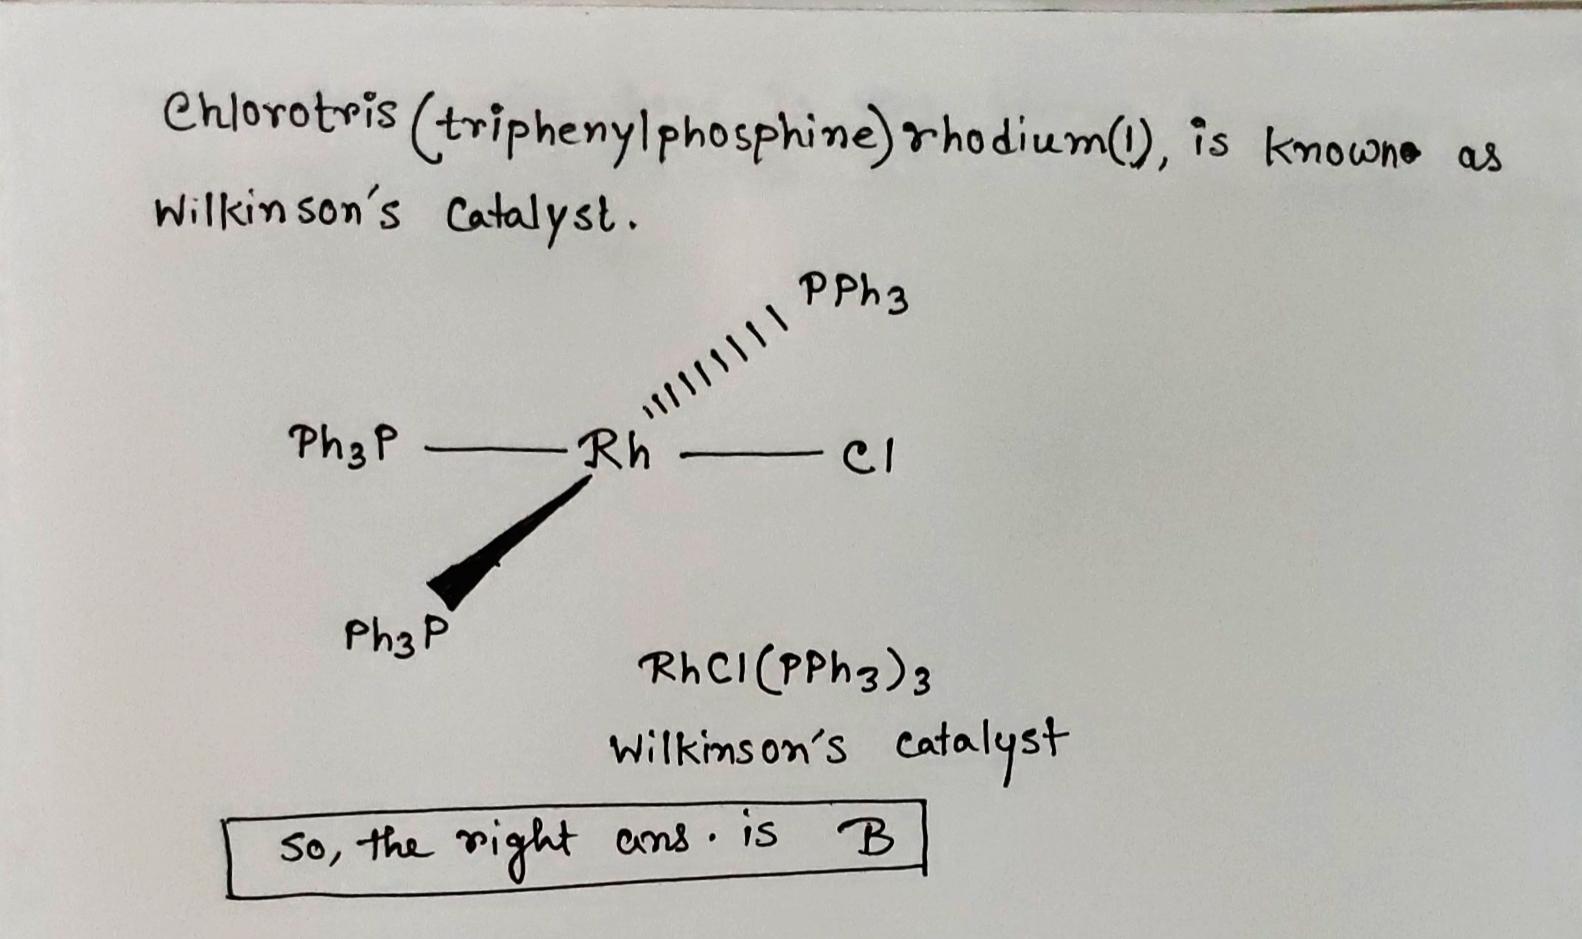 Chlorotris (triphenylphosphine) rhodium(I), is known as
Wilkinson's Catalyst.
PPh3
Ph3P Rh Cl
Ph3P
RhCl(PPh3)3
Wilkinson's catalyst
so, the right ans. is B